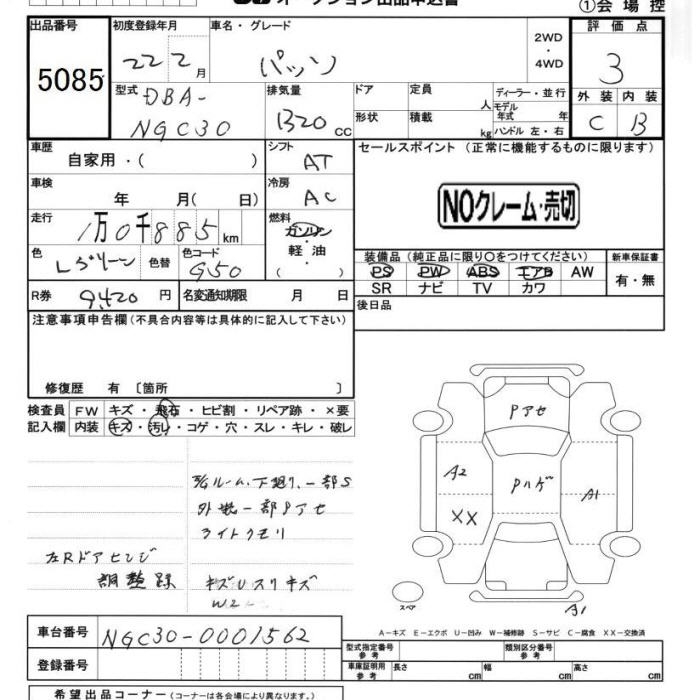 オークション出品申込書
①会場控
出品番号
5085
初度登録年月
22 2月
車名・グレード
パッソ
2WD
・
4WD
評価点
3
型式
DBA-
NGC30
排気量
1320 cc
ドア
定員
人
形状
積載
kg
ディーラー・並行
モデル年式 年
ハンドル 左・右
外装
内装
C
B
車歴
自家用・( )
シフト
AT
セールスポイント (正常に機能するものに限ります)
車検
年 月( 日)
冷房
AC
NOクレーム・売切
走行
1万0千885km
燃料
ガソリン
軽・油
( )
色
Lグリーン
色替
色コード
G50
装備品(純正品に限り○をつけてください)
新車保証書
PS PW ABS エアB AW
SR ナビ TV カワ
有・無
R券
9,420 円
名変通知期限 月 日
後日品
注意事項申告欄(不具合内容等は具体的に記入して下さい)
修復歴 有 〔箇所 〕
検査員
記入欄
FW キズ・飛石・ヒビ割・リペア跡・×要
内装 キズ・汚レ・コゲ・穴・スレ・キレ・破レ
ルーム、下廻り、一部S
外装一部Pアセ
ライトクモリ
左Rドアヒンジ
調整跡
キズUスリキズ
W2
Pアセ
A2
Pハゲ
A1
XX
スペア
A1
A-キズ E-エクボ U-凹み W-補修跡 S-サビ C-腐食 XX-交換済
車台番号
NGC30-0001562
登録番号
型式指定番号
参考
類別区分番号
参考
車庫証明用
参考
長さ cm
幅 cm
高さ cm
希望出品コーナー(コーナーは各会場により異なります。)